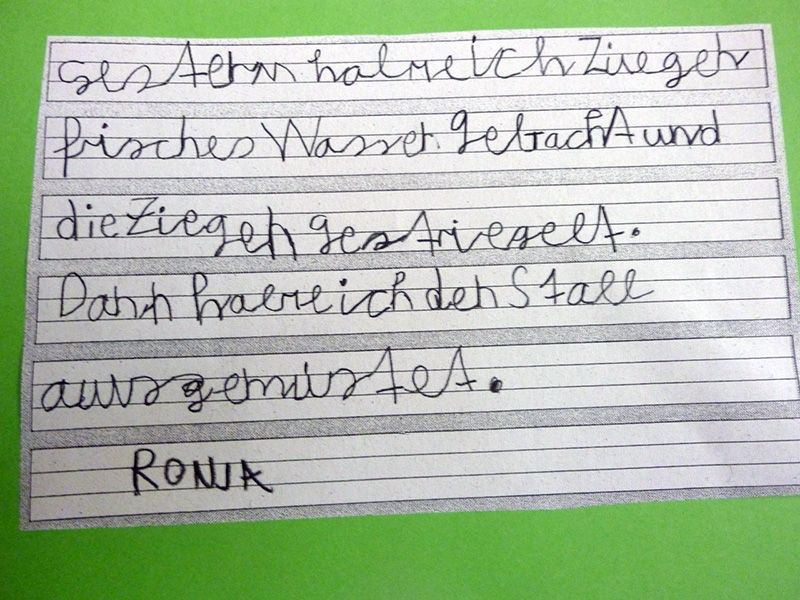 gestern habe ich Ziegen
frisches Wasser gebracht und
die Ziegen gestriegelt.
Dann habe ich den Stall
ausgemistet.
RONJA